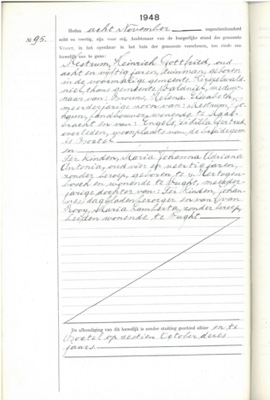 1948
No 95.
Heden acht November negentienhonderd
acht en veertig, zijn voor mij, Ambtenaar van de burgerlijke stand der gemeente
Vught, in het openbaar in het huis der gemeente verschenen, ten einde een
huwelijk aan te gaan:
Nestrum, Heinrich Gottfried, oud
acht en vijftig jaren, tuinman, geboren
in de voormalige gemeente Kirspelwald-
niel, thans gemeente Waldniel, weduw-
naar van: Bruun, Helena Elisabeth,
meerderjarige zoon van: Nestrum, Jo-
hann, landbouwer, wonende te
bracht en van: Engels, Sibilla Gertrud,
overleden, woonplaats van de
is Boxtel
en
Ter Linden, Maria Johanna Adriana
Antonia, oud vier en veertig jaren,
zonder beroep, geboren te 's Hertogen-
bosch en wonende te Vught, meerder-
jarige dochter van: Ter Linden, Johan-
nes, dagloner en van: van
Rooy, Maria Lamberta, zonder beroep,
beiden wonende te Vught
De afkondiging van dit huwelijk is zonder stuiting geschied alhier en te
Boxtel op October dezes
jaars